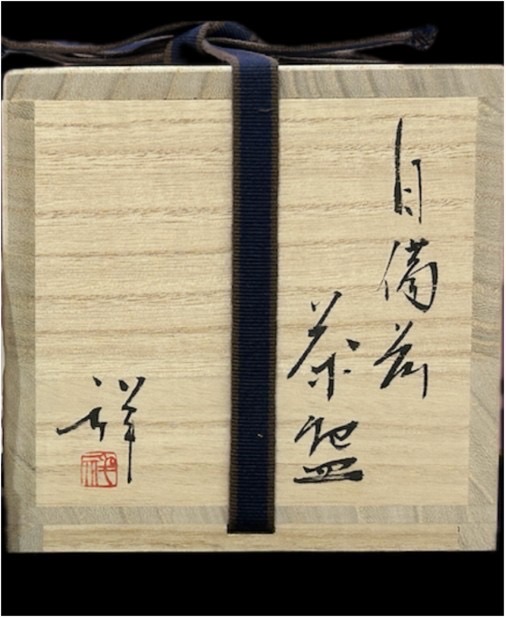 白備前
茶盌
祥